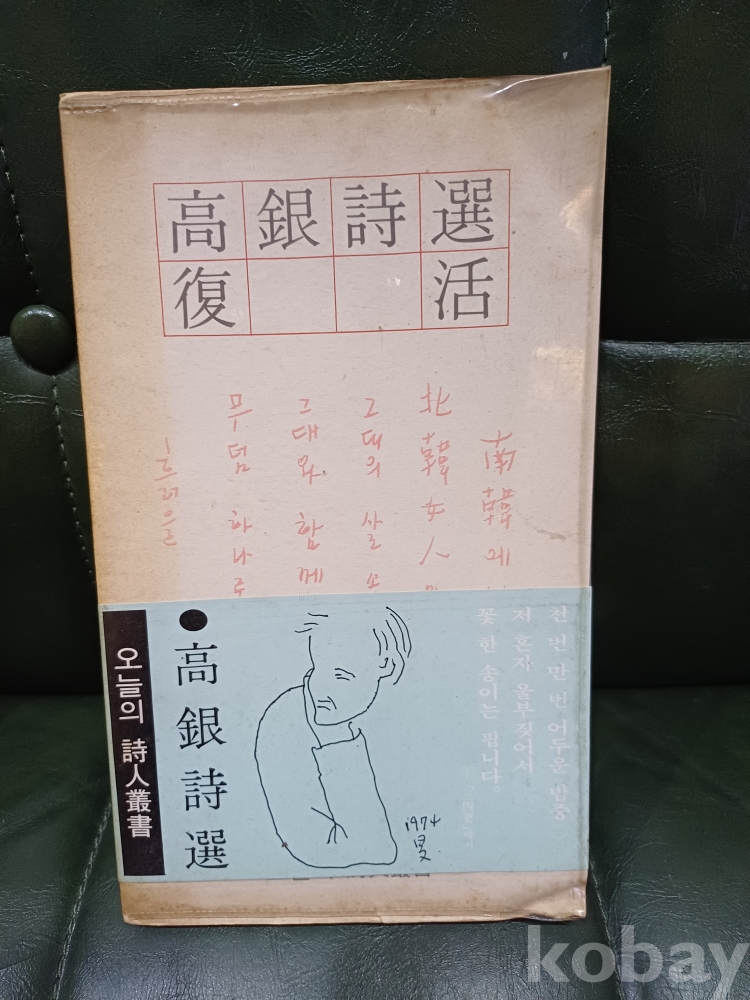 高銀詩選
復活
南韓에
北韓女人
그대의 살
그대와 함께
무덤 하나로
천 번 만 번 어두운 밤중
저 혼자 울부짖어서
꽃 한 송이는 핍니다。
●高銀詩選
오늘의 詩人叢書
1974
kobay